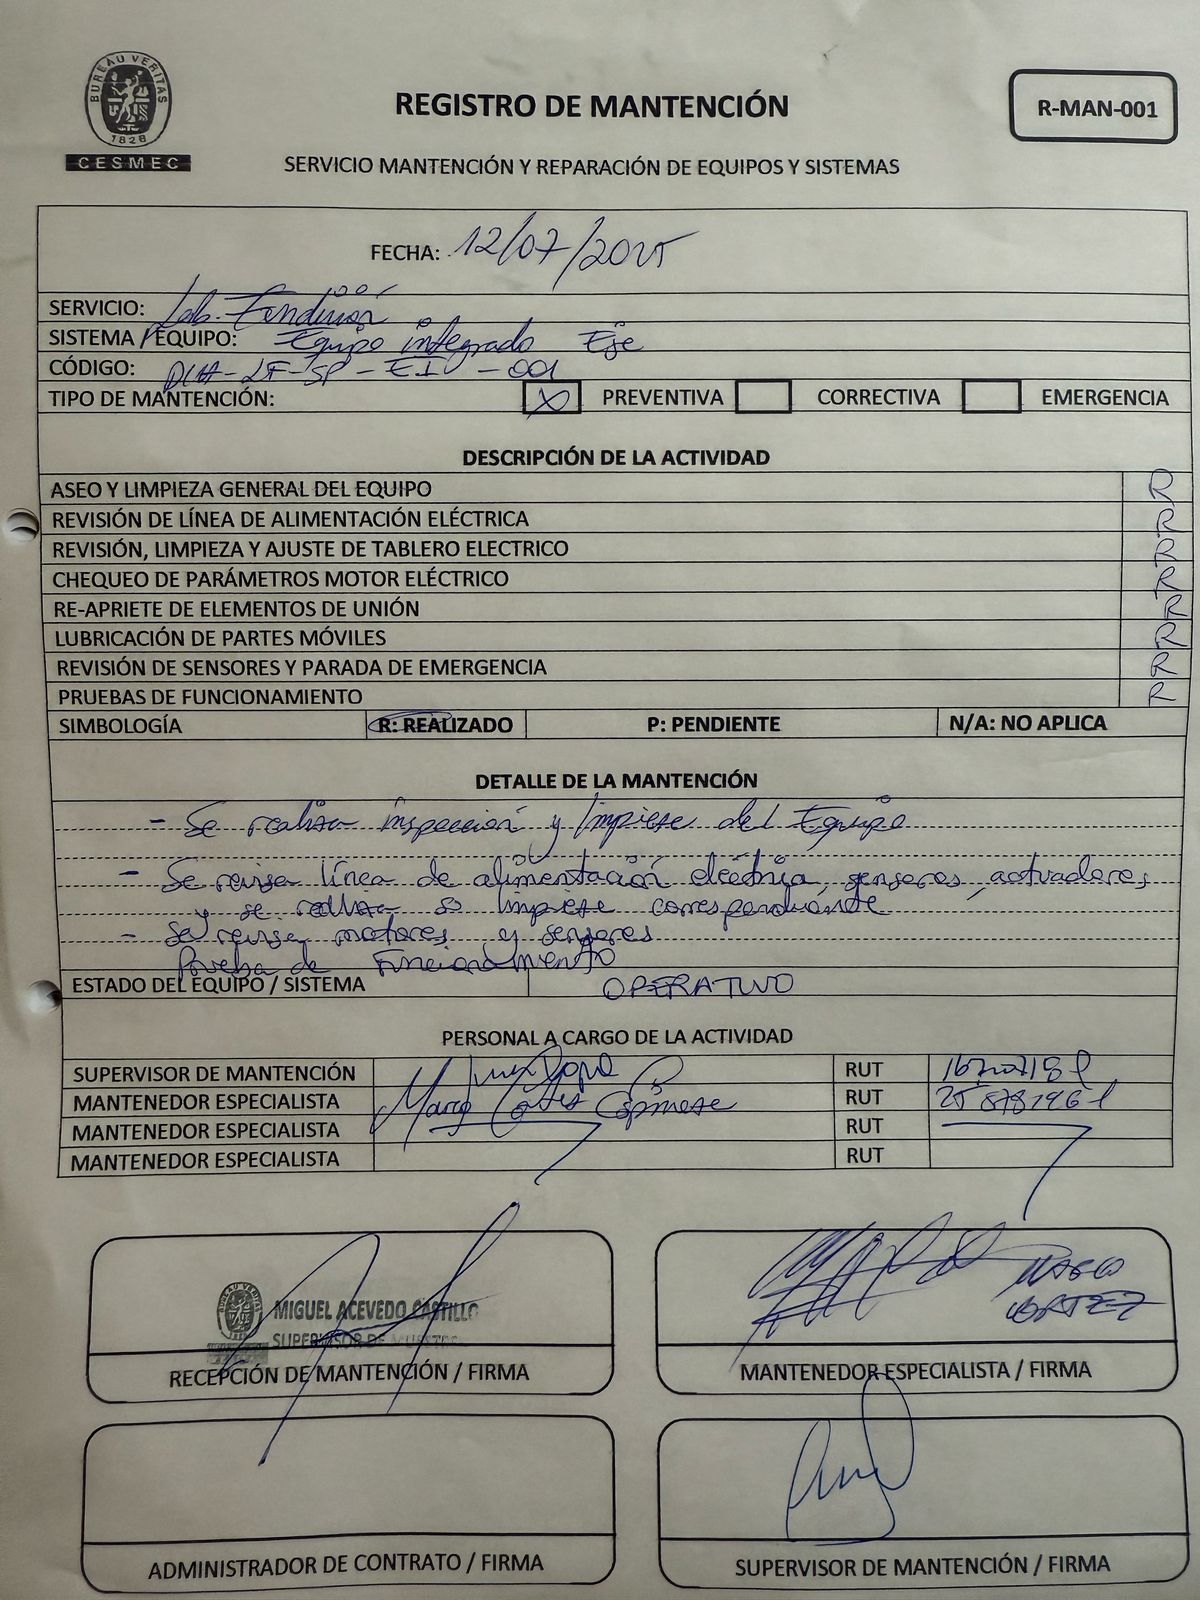 BUREAU VERITAS
1828
CESMEC
REGISTRO DE MANTENCIÓN
R-MAN-001
SERVICIO MANTENCIÓN Y REPARACIÓN DE EQUIPOS Y SISTEMAS
FECHA: 12/07/2025
SERVICIO: Lab. Fundición
SISTEMA / EQUIPO: Equipo integrado Eje
CÓDIGO:
TIPO DE MANTENCIÓN: X PREVENTIVA CORRECTIVA EMERGENCIA
DESCRIPCIÓN DE LA ACTIVIDAD
ASEO Y LIMPIEZA GENERAL DEL EQUIPO R
REVISIÓN DE LÍNEA DE ALIMENTACIÓN ELÉCTRICA R
REVISIÓN, LIMPIEZA Y AJUSTE DE TABLERO ELECTRICO R
CHEQUEO DE PARÁMETROS MOTOR ELÉCTRICO R
RE-APRIETE DE ELEMENTOS DE UNIÓN R
LUBRICACIÓN DE PARTES MÓVILES R
REVISIÓN DE SENSORES Y PARADA DE EMERGENCIA R
PRUEBAS DE FUNCIONAMIENTO R
SIMBOLOGÍA R: REALIZADO P: PENDIENTE N/A: NO APLICA
DETALLE DE LA MANTENCIÓN
- Se realiza inspección y limpiese del Equipo
- Se revisa línea de alimentación eléctrica, sensores, actuadores,
y se realiza su limpiese correspondiente
- Se revisa motores y sensores
Prueba de Funcionamiento
ESTADO DEL EQUIPO / SISTEMA OPERATIVO
PERSONAL A CARGO DE LA ACTIVIDAD
SUPERVISOR DE MANTENCIÓN RUT
MANTENEDOR ESPECIALISTA Marco Cortes RUT
MANTENEDOR ESPECIALISTA RUT
MANTENEDOR ESPECIALISTA RUT
MARCO
CORTEZ
BUREAU VERITAS
MIGUEL ACEVEDO CASTILLO
SUPERVISOR DE
RECEPCIÓN DE MANTENCIÓN / FIRMA
MANTENEDOR ESPECIALISTA / FIRMA
ADMINISTRADOR DE CONTRATO / FIRMA
SUPERVISOR DE MANTENCIÓN / FIRMA